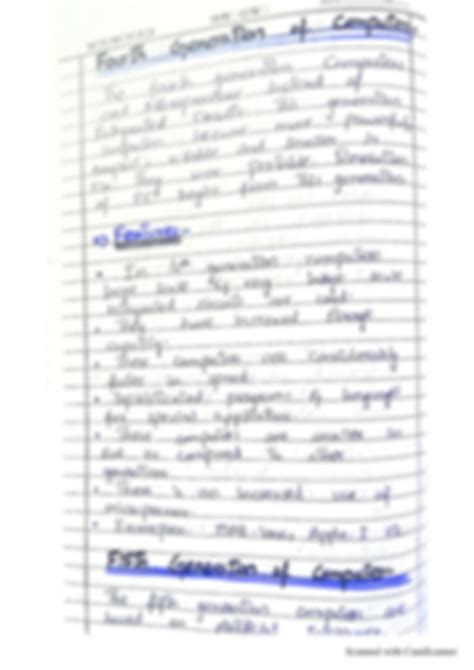 Fourth Generation of Computer
The fourth generation Computers
used Microprocessor instead of
Integrated Circuits. This generation
computers became more powerful
compact, reliable and smaller in
They were portable. Revolution
of PC begins from this generation
=> Features:-
• In 4th generation computers
large scale & very large scale
integrated circuits are used.
• They have increased storage
capacity.
• These computers are considerably
faster in speed.
• Sophisticated programs & languages
for special application.
• These computers are smaller in
size as compared to other
generations.
• There is an increased use of
microprocessor.
• Examples: IBM Apple I
Fifth Generation of Computer
The fifth generation computers are
based on artificial
Scanned with CamScanner